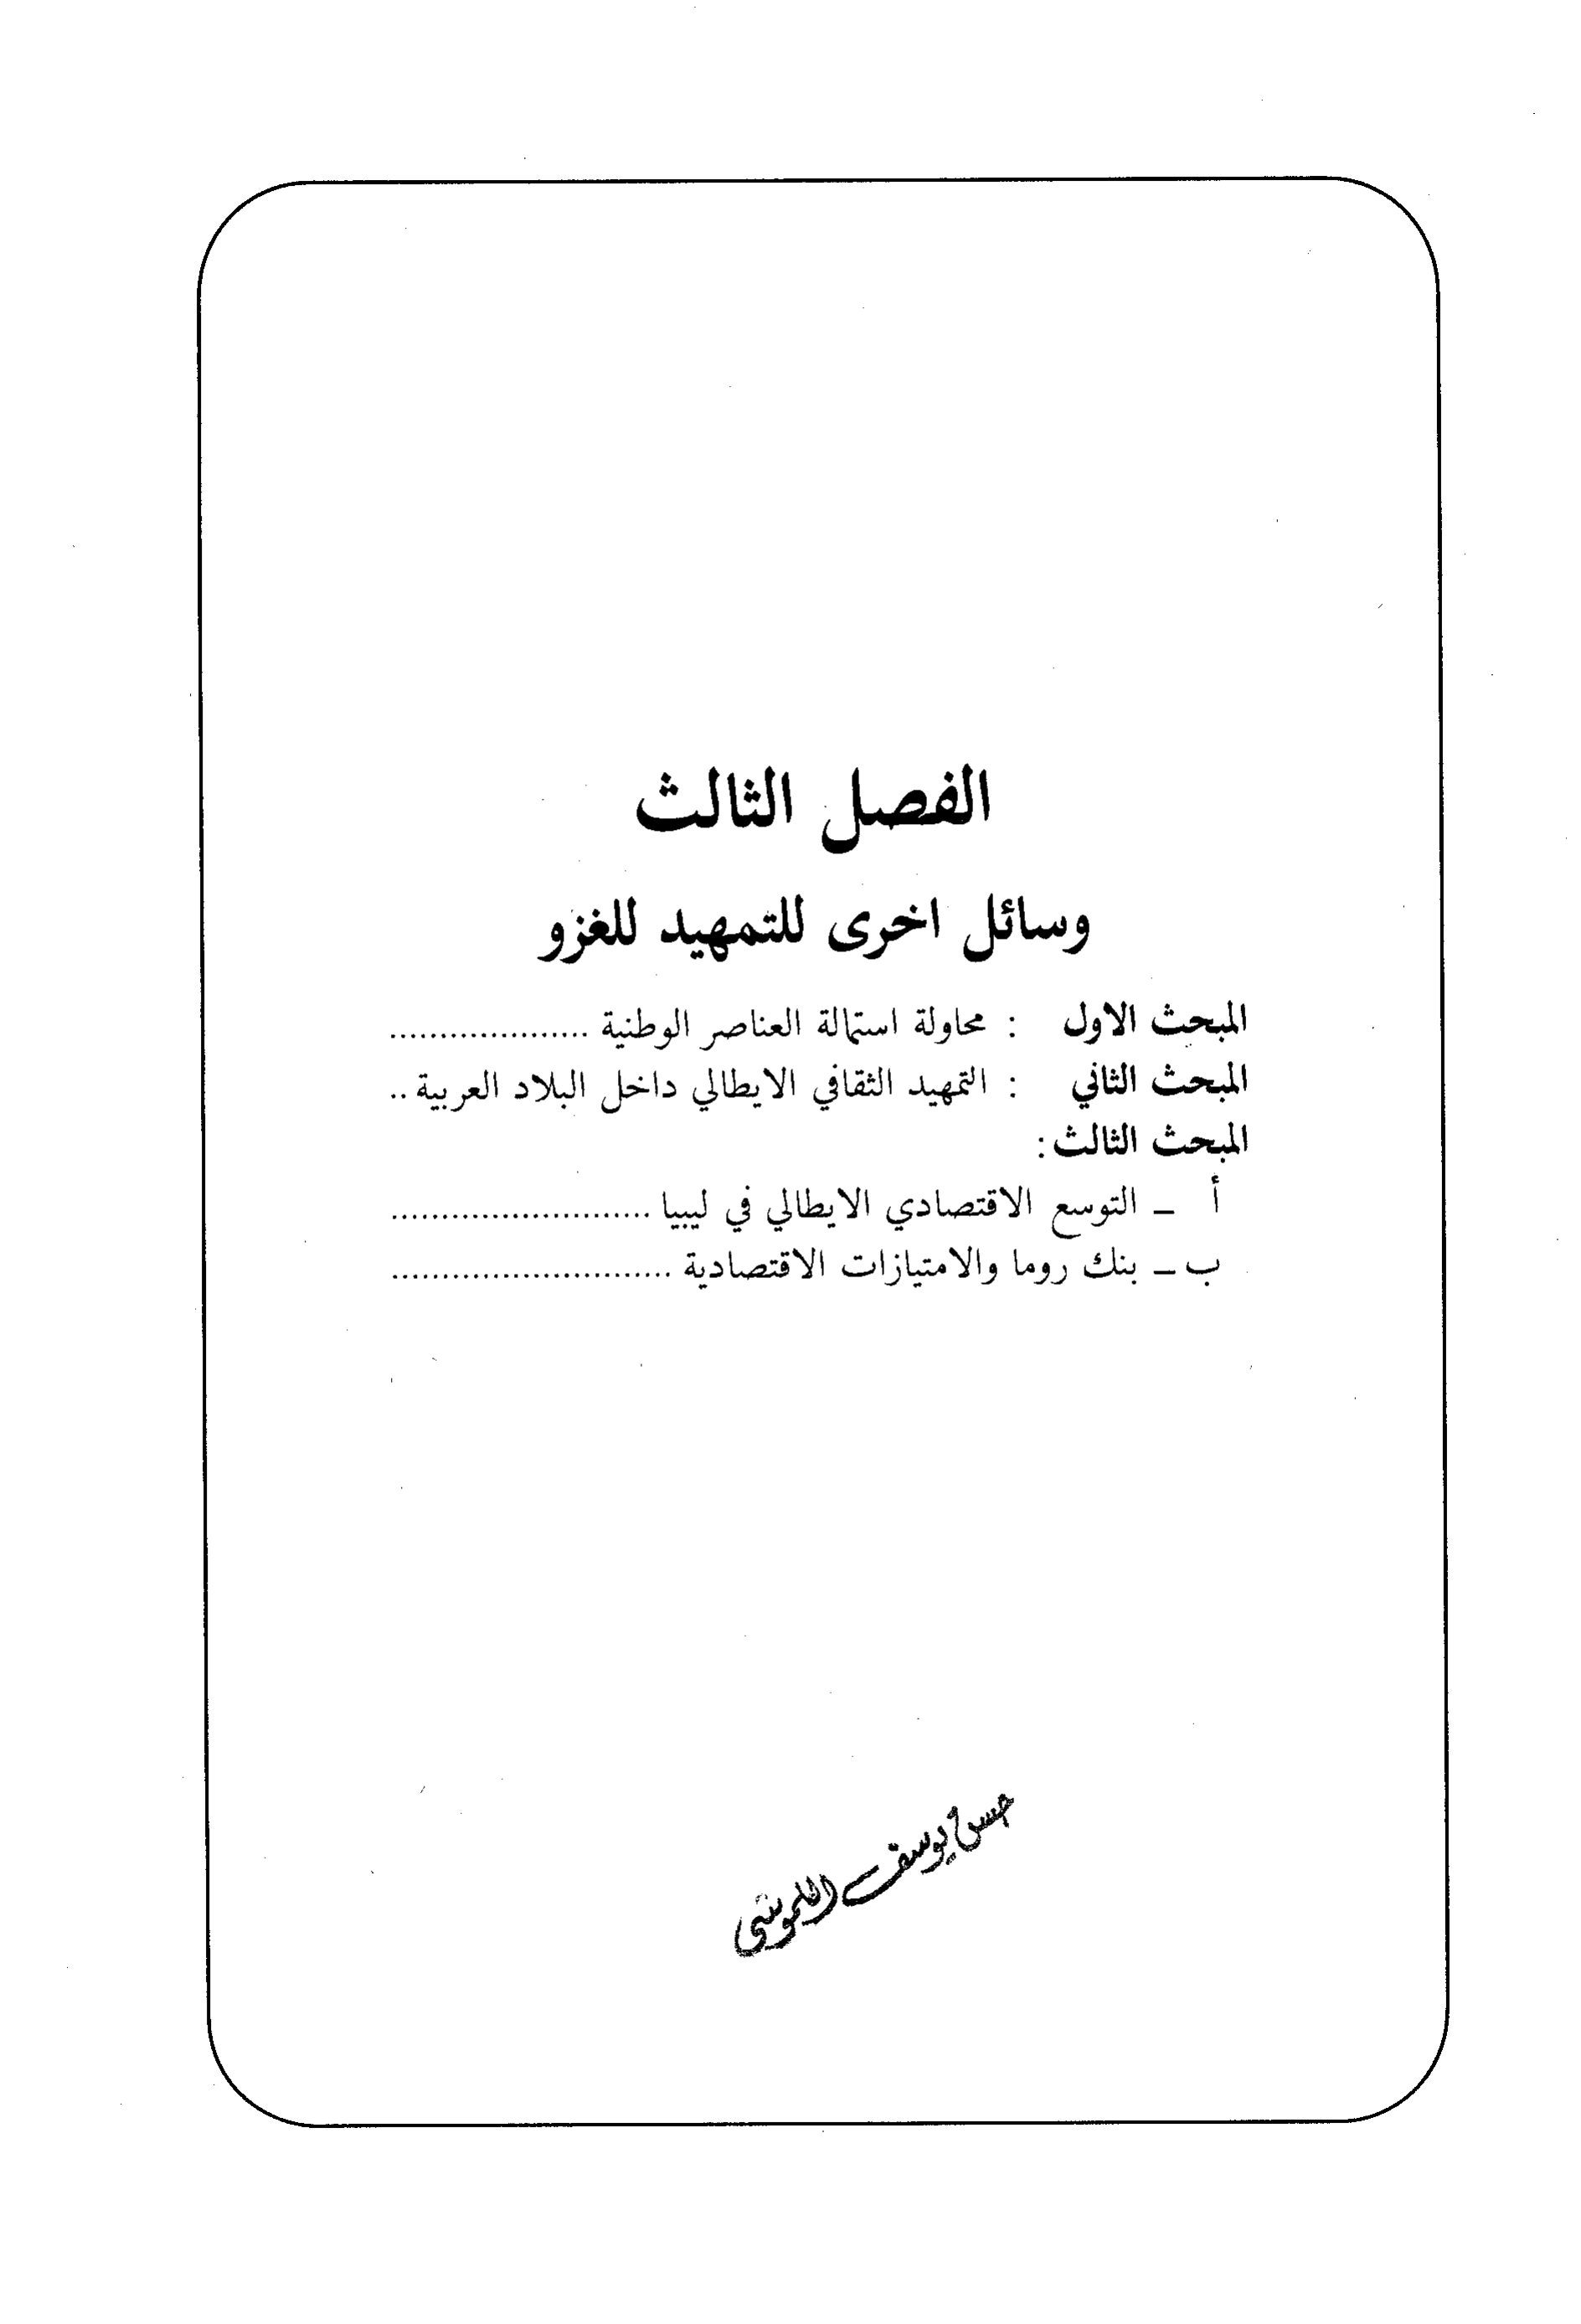 الفصل الثالث
وسائل اخرى للتمهيد للغزو
المبحث الاول : محاولة استمالة العناصر الوطنية ....................
المبحث الثاني : التمهيد الثقافي الايطالي داخل البلاد العربية ..
المبحث الثالث:
أ ـ التوسع الاقتصادي الايطالي في ليبيا ..........................
ب ـ بنك روما والامتيازات الاقتصادية ............................
حسن يوسف